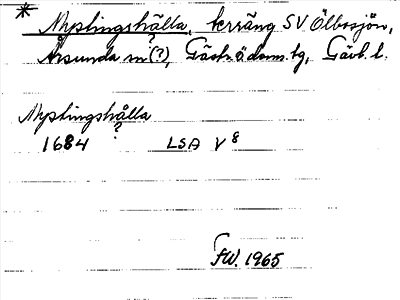 * Myplingshålla, terräng SV Ölbosjön,
Årsunda sn (?), Gästr. ö. doms. tg, Gävl. l.
Myplingshålla
?
1684 LSA V 8
FW. 1965